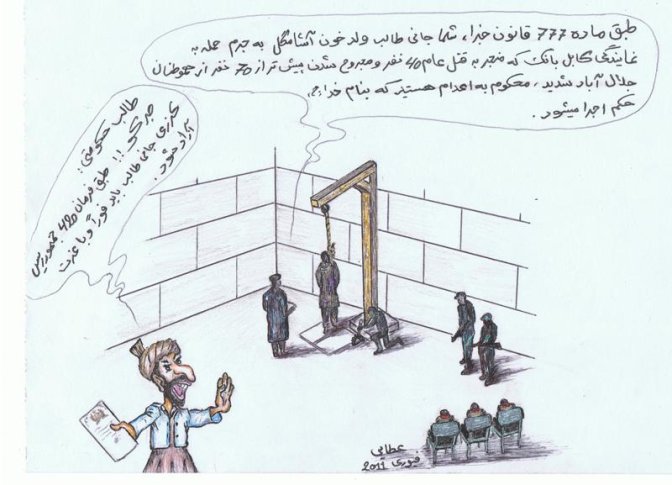 طبق ماده 777 قانون جزا، شما جانی طالب ولد خون آشامگل به جرم حمله به
نمایندگی کابل بانک که منجر به قتل عام 40 نفر و مجروح شدن بیش تر از 70 نفر از هموطنان
جلال آباد شدید، محکوم به اعدام هستید که بنام خدا(ج)
حکم اجرا میشود.
طالب حکومتی:
صبر کو!!! طبق فرمان 420 جمهور رییس
کرزی جانی طالب باید فوراً و با عزت
آزاد شود.
عطایی
فبوری 2011